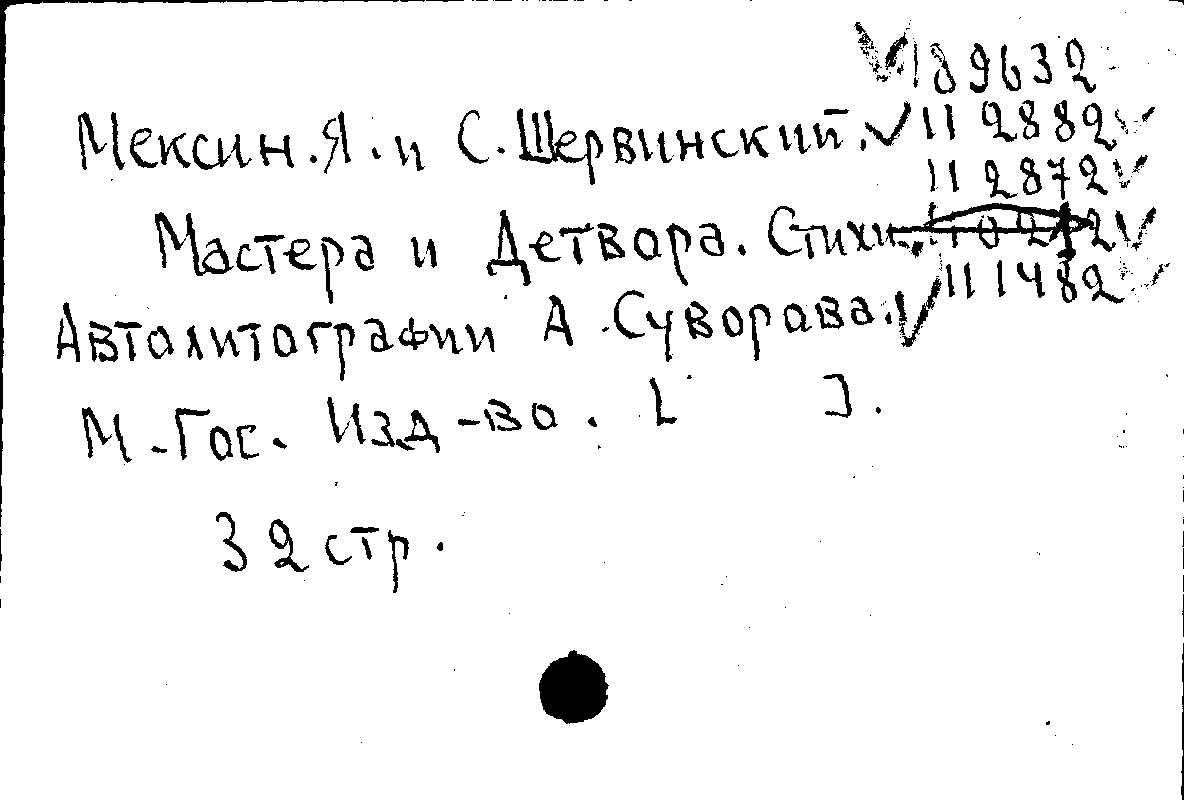 189632
Мексин. Я. и С. Шервинский. 112882
112872
Мастера и Детвора. Стихи.
111482
Автолитографии А. Суворова.
М. Гос. Изд-во. [ ].
32 стр.